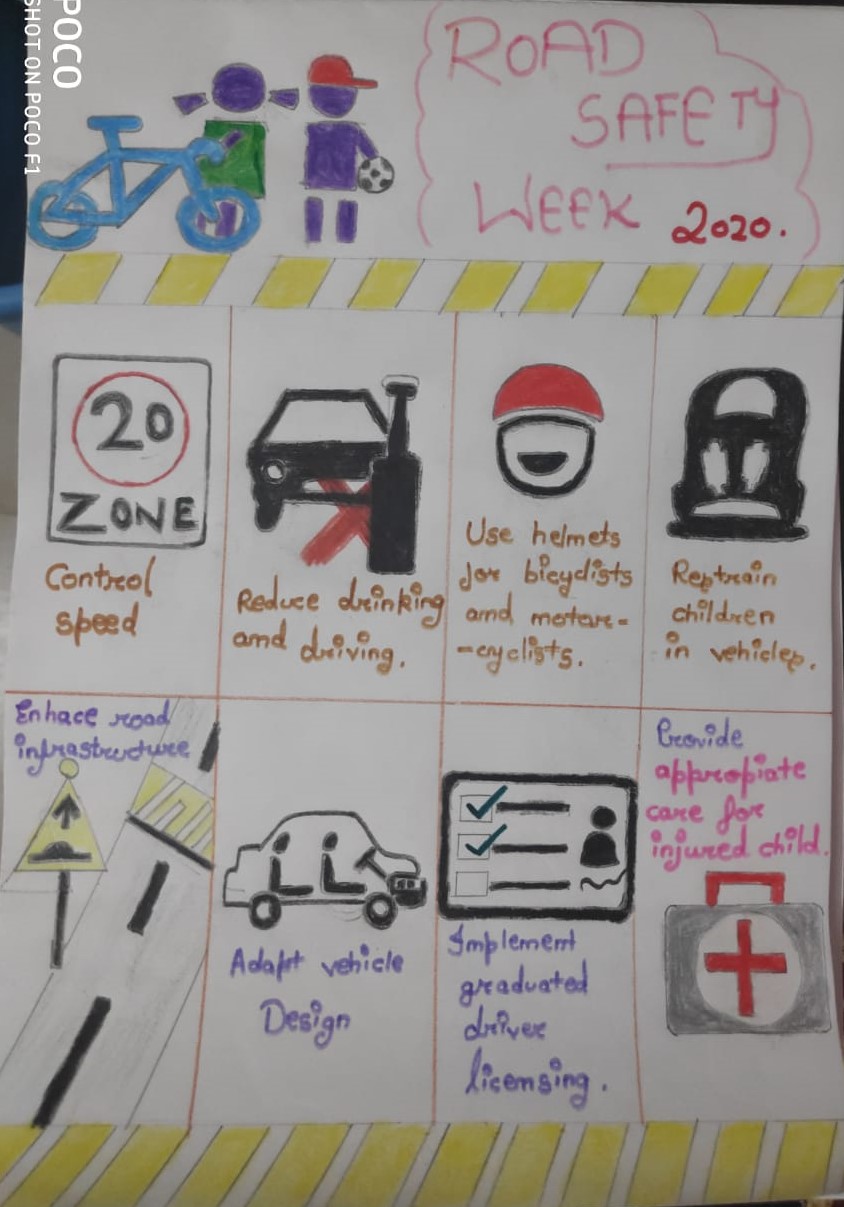 POCO
SHOT ON POCO F1
ROAD
SAFETY
WEEK 2020.
20
ZONE
Control
speed
Reduce drinking
and driving.
Use helmets
for bicyclists
and motor-
-cyclists.
Reptrain
children
in vehicles.
Enhace road
infrastructure
Adapt vehicle
Design
Implement
graduated
driver
licensing.
Provide
appropiate
care for
injured child.